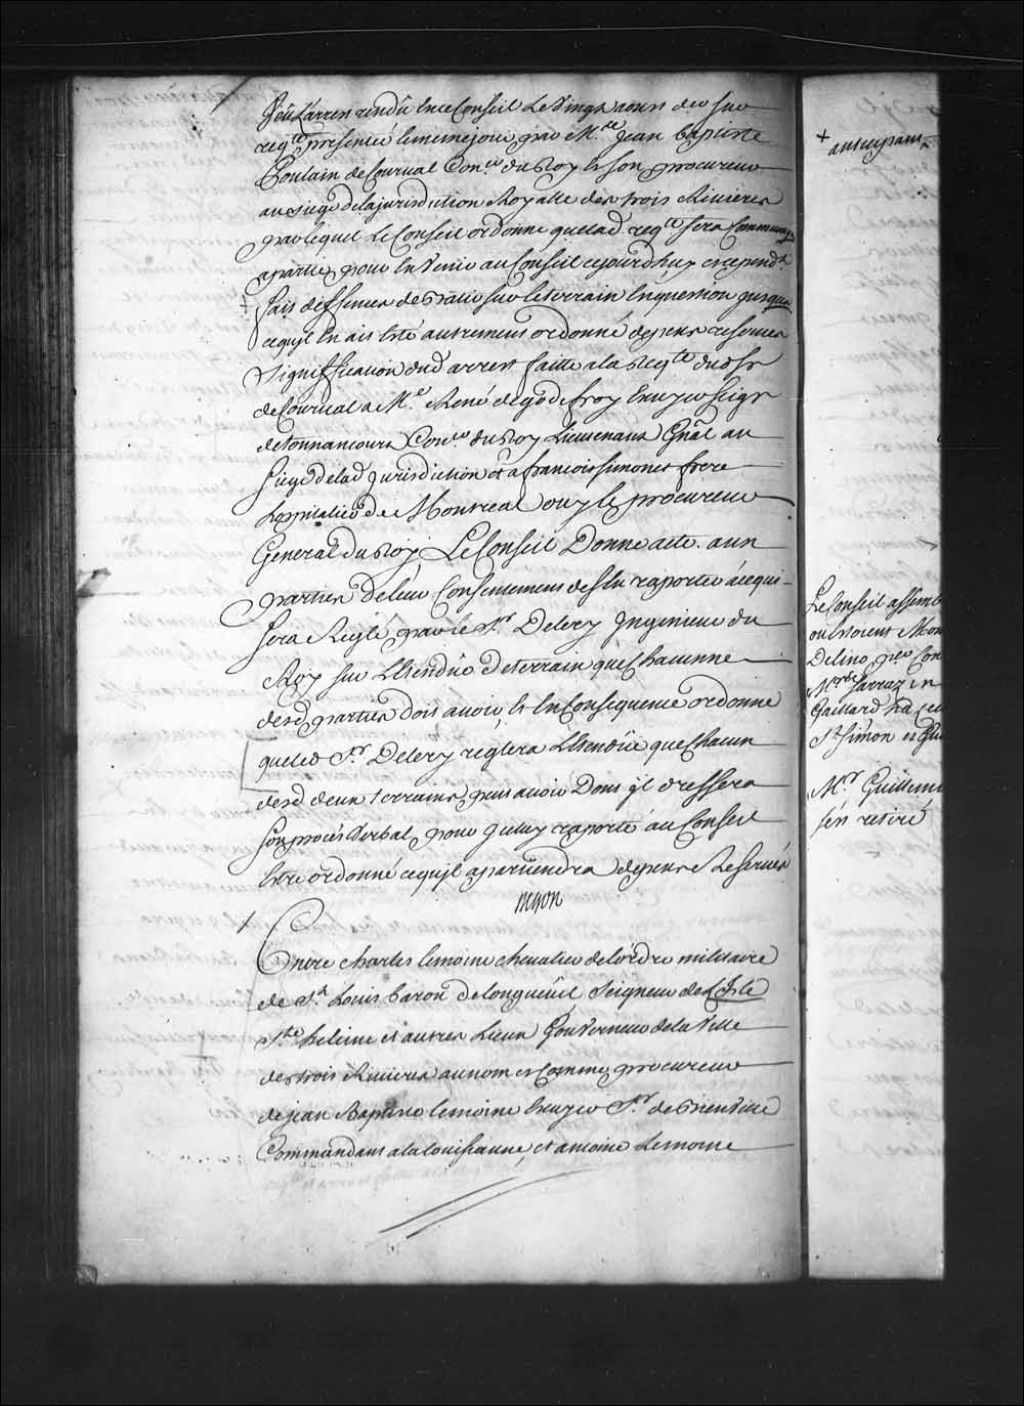 Veû l'arrest rendû en ce Conseil le vingt aoust der sur
reqte presentée le meme jour par Mre Jean baptiste
Poulain de Courual Coner du Roy et son procureur
au siege de la jurisdiction Royalle des trois Rivieres
par lequel le Conseil ordonne que lad reqte sera Communiqé
a partie pour en venir au Conseil cejourd'huy et cependt
fait deffenses de batir sur le terrain en question jusqua
cequ'il en ait esté autrement ordonné depens reservés
Signiffication dud arrest faitte a la Reqte dud Sr
de Courual a Me René degodefroy Ecuyer Seigr
de tonnancourt Coner du Roy Lieutenant Gñal au
siege de lad jurisdiction et a francois simonet frere
hospitalier de Montreal ouy le procureur
General du Roy, Le Conseil Donne acte aux
parties de leur Consentement de s'en raporter a ce qui
sera Reglé par le Sr Delery Ingenieur du
Roy sur L'Etenduë de terrain que Chacunne
desd parties doit avoir, et en Consequence ordonne
que led Sr Delery reglera L'Etenduë que Chacun
desd deux terrains puis avoir Dont il dressera
son procés verbal, pour iceluy raporté au Conseil
être ordonné cequ'il apartiendra depens Reservés
Begon
Entre charles lemoine chevalier de l'ordre militaire
de St Louis baron de longueüil Seigneur de L'Isle
Ste heleine et autres Lieux Gouverneur de la Ville
des trois Rivieres au nom et Comme procureur
de jean Baptiste lemoine Ecuyer Sr de bienville
Commandant a la louisianne, et antoine Lemoine
+
Le Conseil assemb
ou estoient Mon
Delino per Con
Mrs Sarrazin
Gaillard
St Simon et Gui
Mr Guillemi
s'en retiré